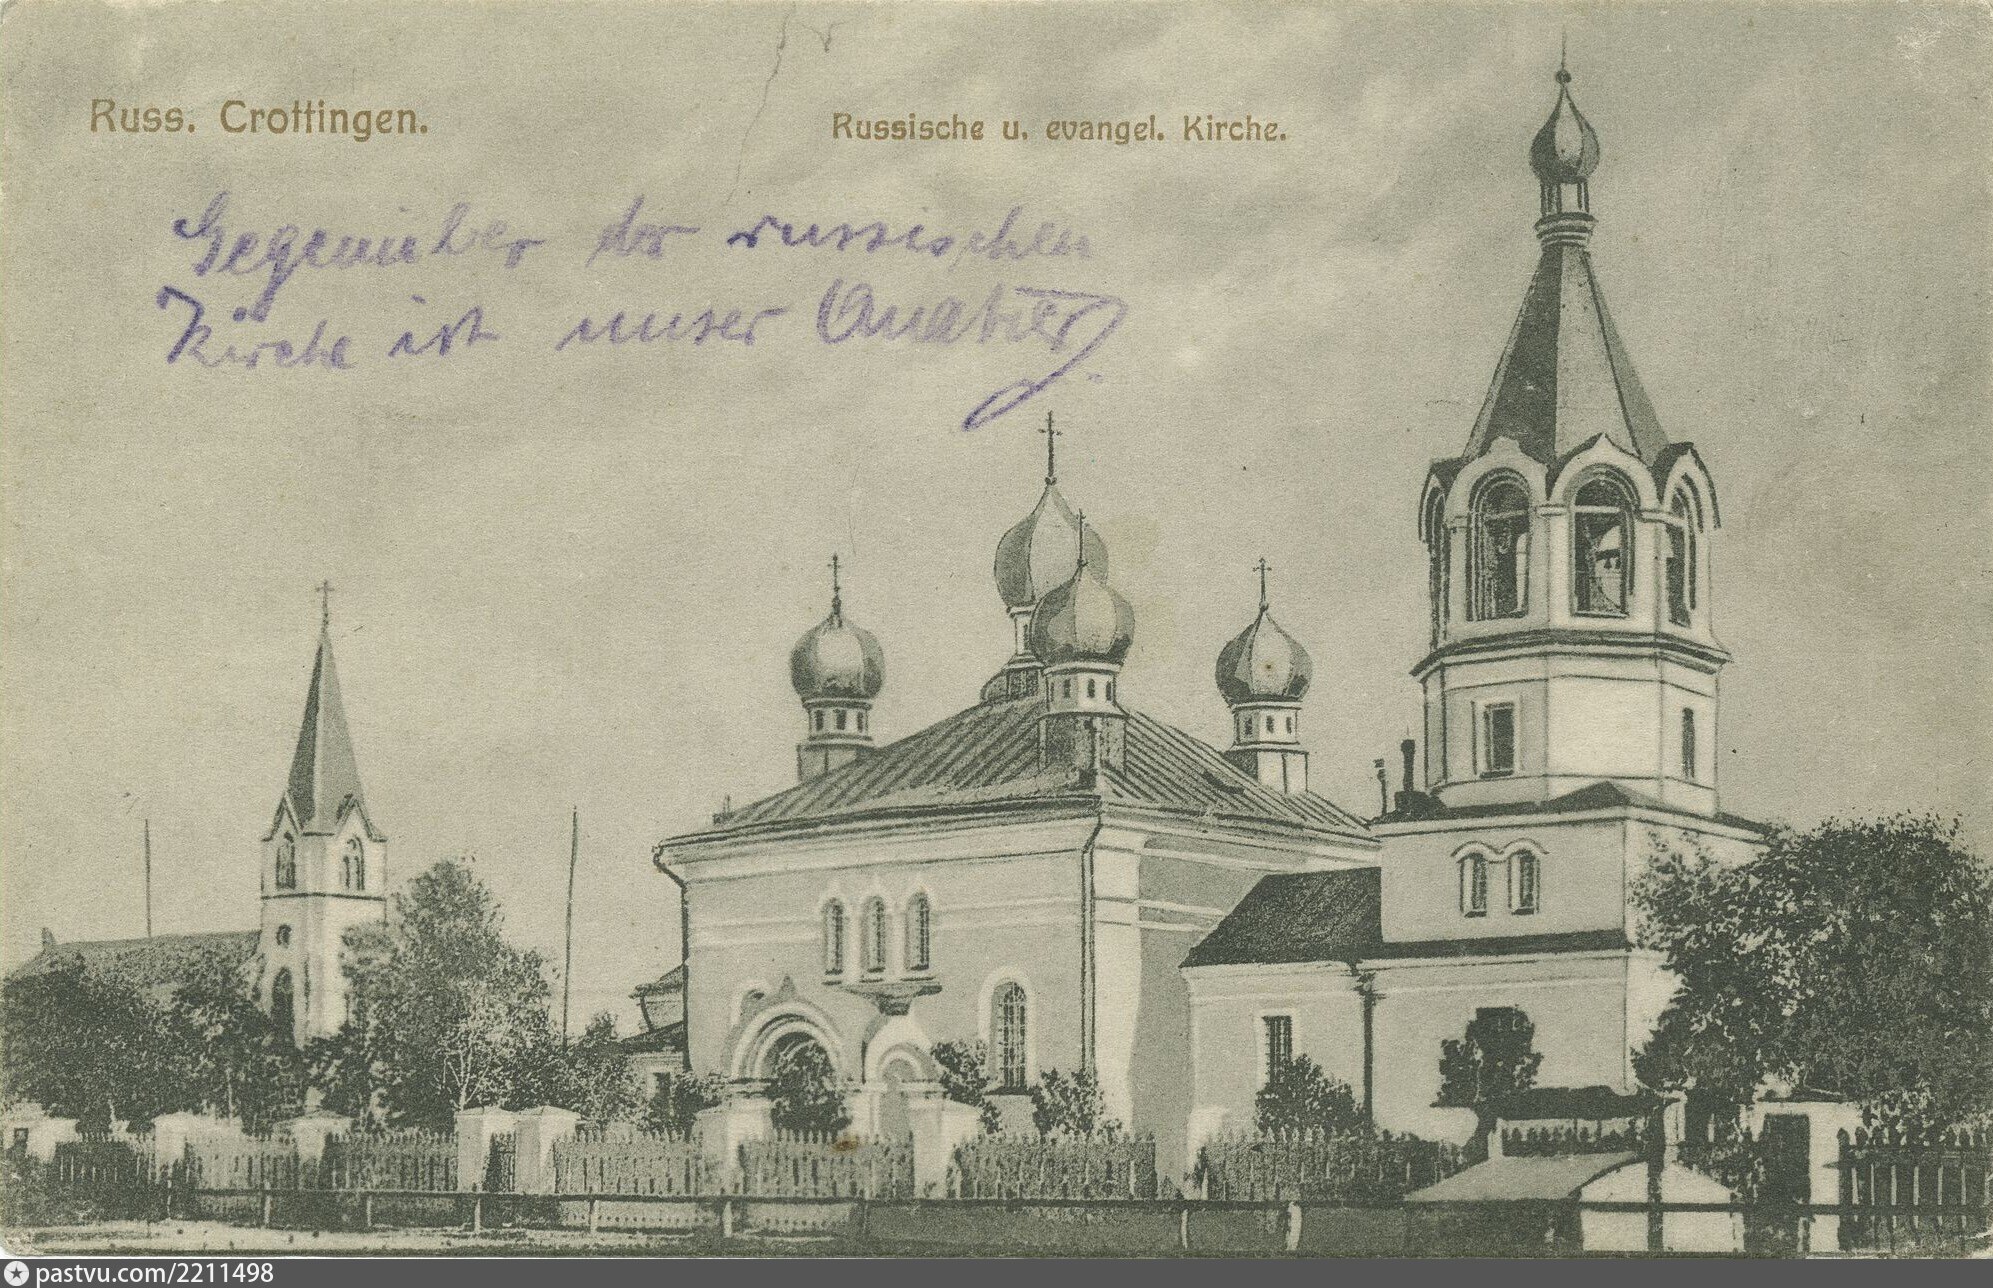 Russ. Crottingen.
Russische u. evangel. Kirche.
Gegenüber der russischen
Kirche ist unser Quatier.
pastvu.com/2211498